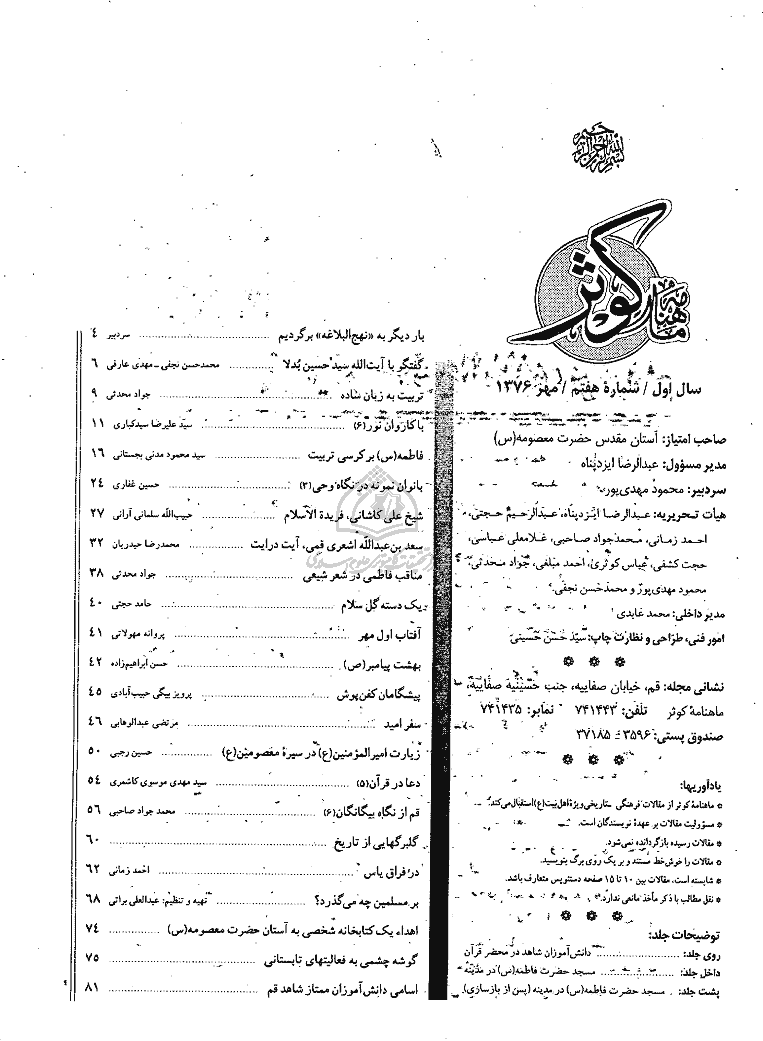 بسم الله الرحمن الرحیم
ماهنامه کوثر
سال اول / شمارهٔ هفتم / مهر ۱۳۷۶
صاحب امتیاز: آستان مقدس حضرت معصومه(س)
مدیر مسؤول: عبدالرضا ایزدپناه
سردبیر: محمود مهدی‌پور
هیأت تحریریه: عبدالرضا ایزدپناه، عبدالرحیم حجتی،
احمد زمانی، محمدجواد صاحبی، غلامعلی عباسی،
حجت کشفی، عباس کوثری، احمد مبلغی، جواد محدثی،
محمود مهدی‌پور و محمدحسن نجفی.
مدیر داخلی: محمد عابدی
امور فنی، طراحی و نظارت چاپ: سیّد حسن حسینی
نشانی مجله: قم، خیابان صفاییه، جنب حسینیّهٔ صفاییه،
ماهنامهٔ کوثر تلفن: ۷۴۱۴۴۳ نمابر: ۷۴۱۴۳۵
صندوق پستی: ۳۵۹۶ـ ۳۷۱۸۵
یادآوریها:
* ماهنامهٔ کوثر از مقالات فرهنگی ـ تاریخی ویژهٔ اهل‌بیت(ع) استقبال می‌کند.
* مسؤولیت مقالات بر عهدهٔ نویسندگان است.
* مقالات رسیده بازگردانده نمی‌شود.
* مقالات را خوش‌خط، مستند و بر یک روی برگ بنویسید.
* شایسته است، مقالات بین ۱۰ تا ۱۵ صفحه دستنویس متعارف باشد.
* نقل مطالب با ذکر مأخذ مانعی ندارد.
توضیحات جلد:
روی جلد: دانش‌آموزان شاهد در محضر قرآن
داخل جلد: مسجد حضرت فاطمه(س) در مدینه
پشت جلد: مسجد حضرت فاطمه(س) در مدینه (پس از بازسازی).
بار دیگر به «نهج‌البلاغه» برگردیم ........ سردبیر ۴
گفتگو با آیت‌الله سید حسین بُدلا ........ محمدحسن نجفی ـ مهدی عارفی ۶
تربیت به زبان ساده ........ جواد محدثی ۹
با کاروان نور(۶) ........ سیّد علیرضا سیدکباری ۱۱
فاطمه(س) بر کرسی تربیت ........ سید محمود مدنی بجستانی ۱۶
بانوان نمونه در نگاه وحی(۳) ........ حسین غفاری ۲۴
شیخ علی کاشانی، فریدة الاسلام ........ حبیب‌الله سلمانی آرانی ۲۷
سعد بن‌عبدالله اشعری قمی، آیت درایت ........ محمدرضا حیدریان ۳۲
مناقب فاطمی در شعر شیعی ........ جواد محدثی ۳۸
یک دسته گل سلام ........ حامد حجتی ۴۰
آفتاب اول مهر ........ پروانه مهولاتی ۴۱
بهشت پیامبر(ص) ........ حسن ابراهیم‌زاده ۴۲
پیشگامان کفن‌پوش ........ پرویز بیگی حبیب‌آبادی ۴۵
سفر امید ........ مرتضی عبدالوهابی ۴۶
زیارت امیرالمؤمنین(ع) در سیرهٔ معصومین(ع) ........ حسین رجبی ۵۰
دعا در قرآن(۵) ........ سید مهدی موسوی کاشمری ۵۴
قم از نگاه بیگانگان(۶) ........ محمد جواد صاحبی ۵۶
گلبرگهایی از تاریخ ........ ۶۰
در فراق یاس ........ احمد زمانی ۶۲
بر مسلمین چه می‌گذرد؟ ........ تهیه و تنظیم: عبدالعلی براتی ۶۸
اهداء یک کتابخانه شخصی به آستان حضرت معصومه(س) ........ ۷۴
گوشه چشمی به فعالیتهای تابستانی ........ ۷۵
اسامی دانش‌آموزان ممتاز شاهد قم ........ ۸۱